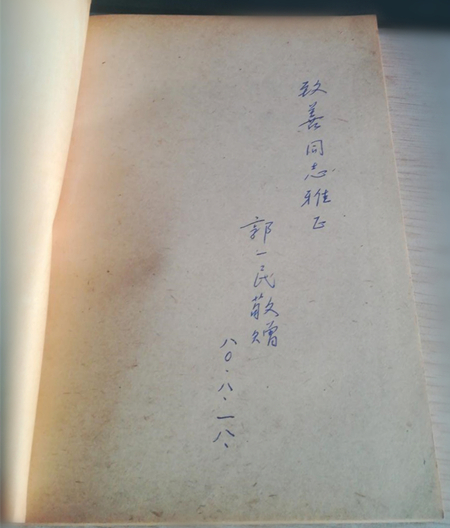 致善同志雅正
郭一民敬赠
八〇.八.一八.